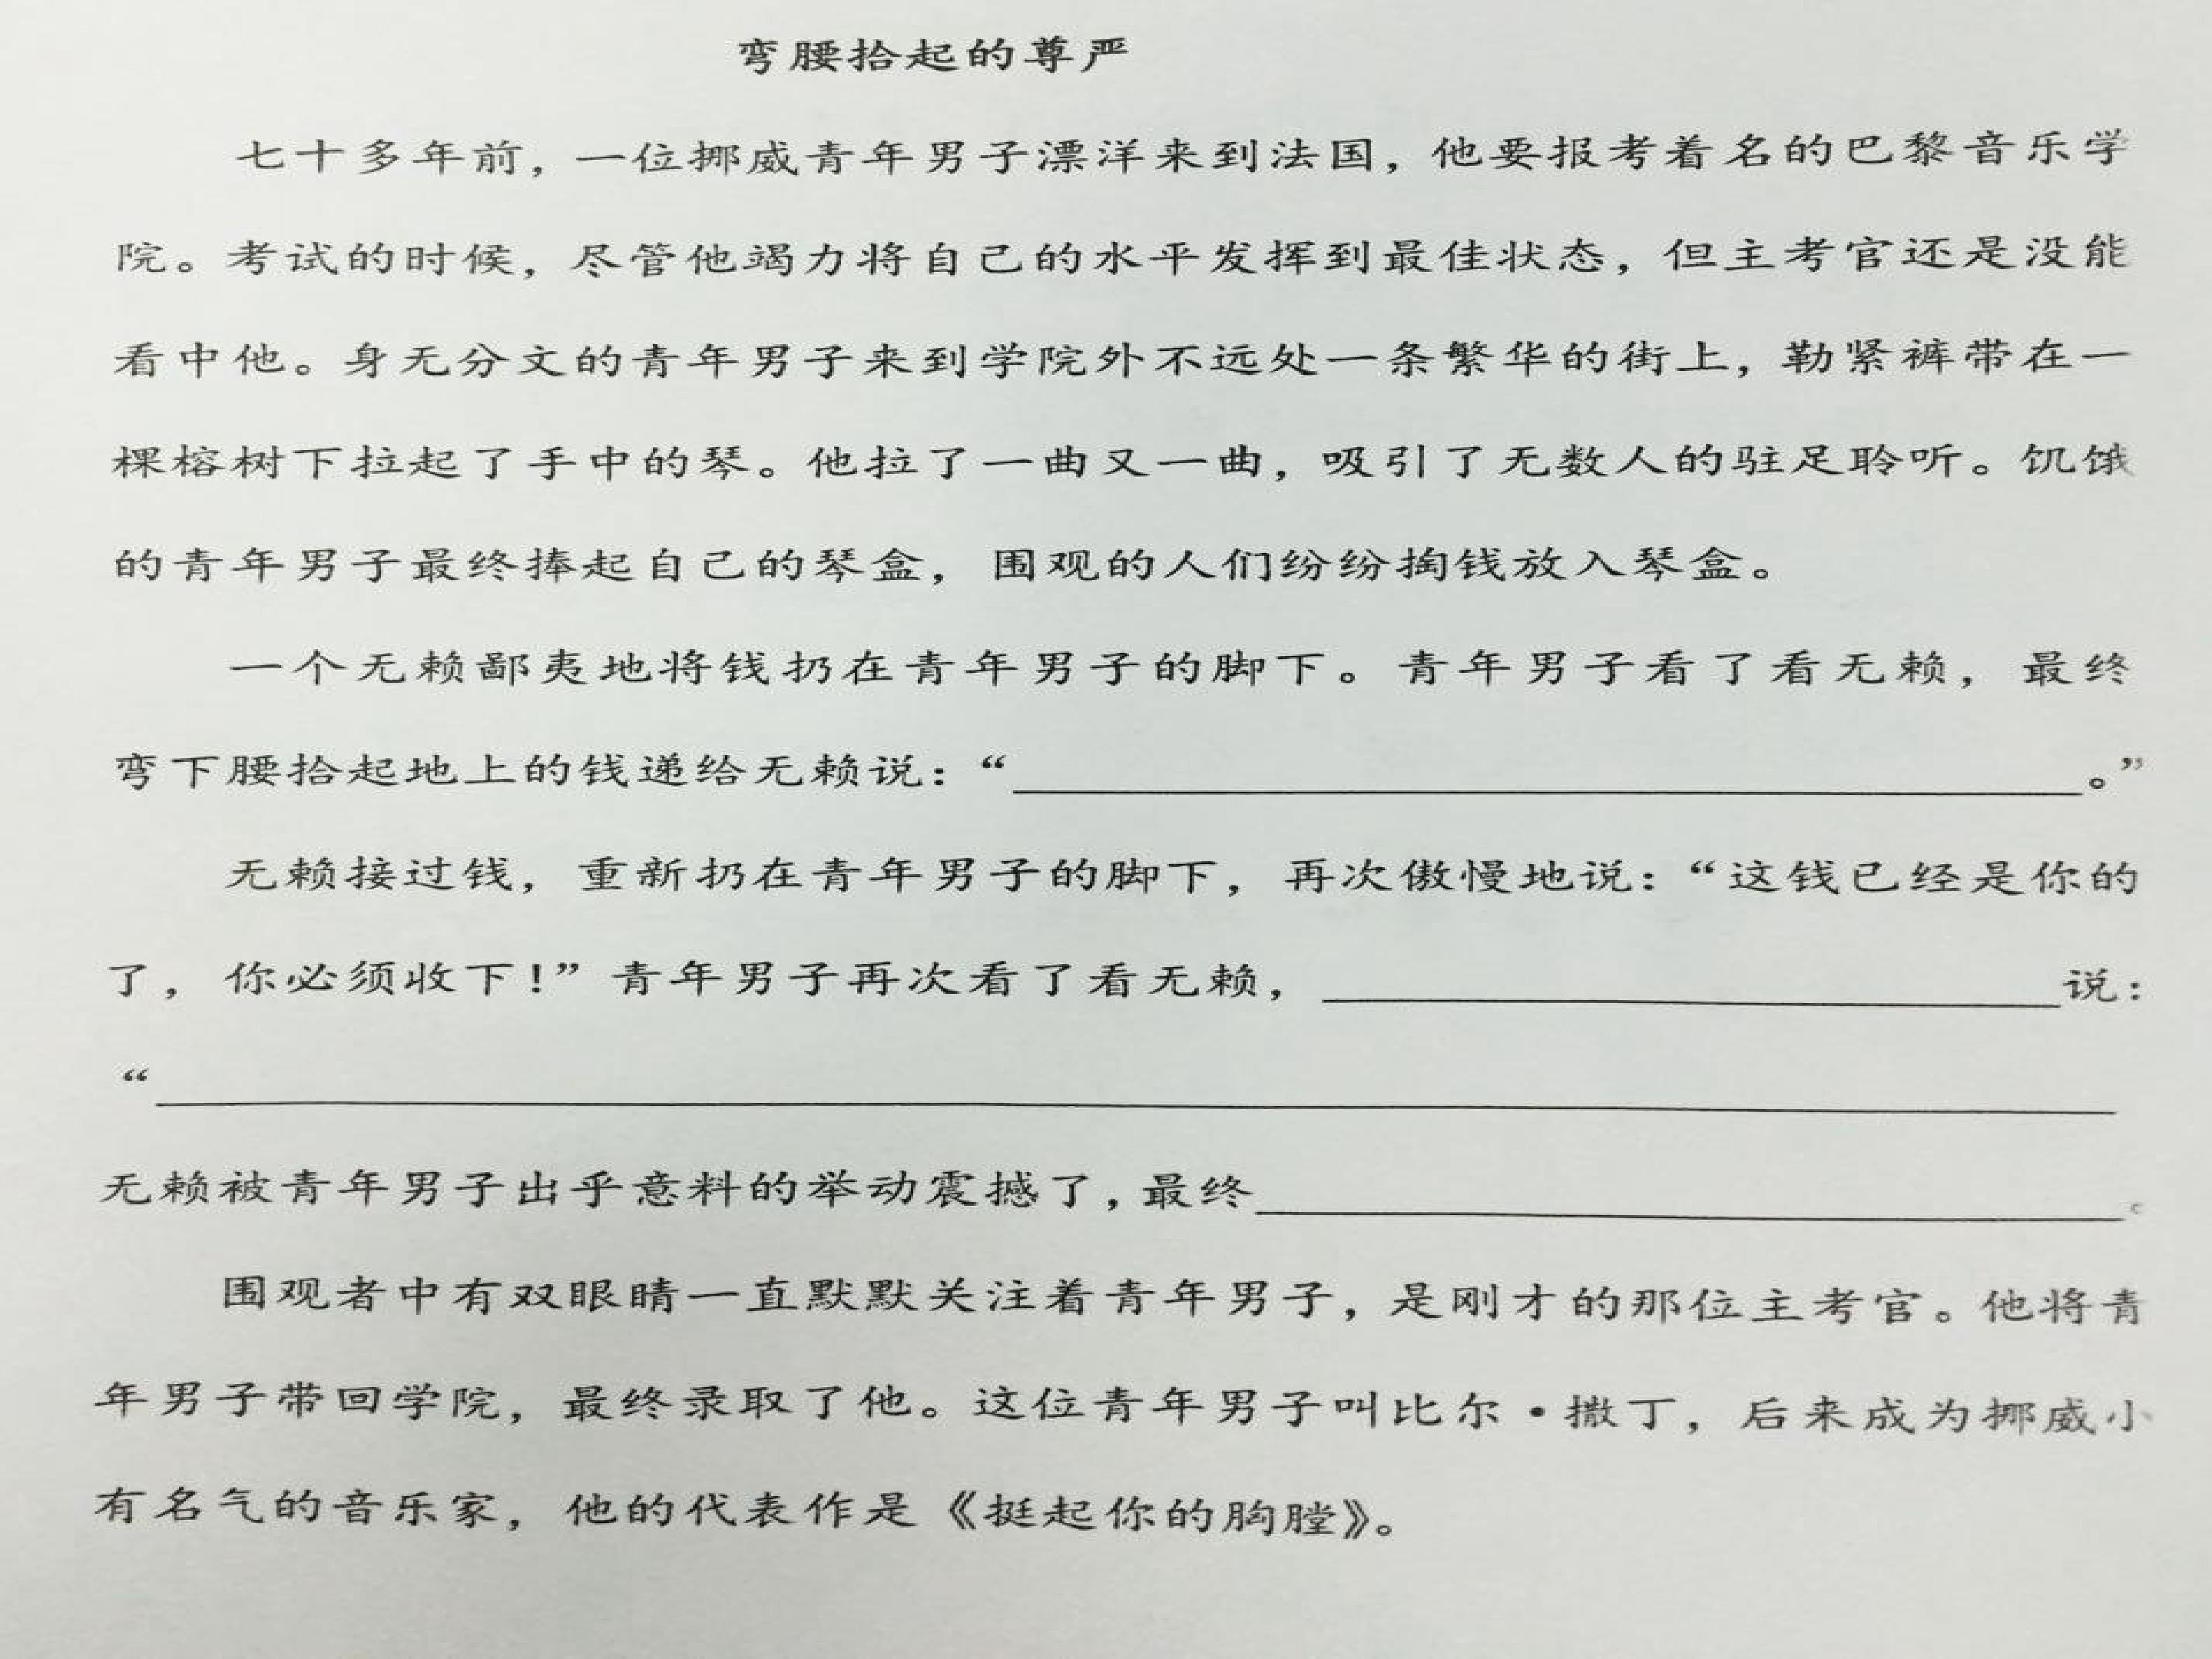 弯腰拾起的尊严
七十多年前，一位挪威青年男子漂洋来到法国，他要报考着名的巴黎音乐学
院。考试的时候，尽管他竭力将自己的水平发挥到最佳状态，但主考官还是没能
看中他。身无分文的青年男子来到学院外不远处一条繁华的街上，勒紧裤带在一
棵榕树下拉起了手中的琴。他拉了一曲又一曲，吸引了无数人的驻足聆听。饥饿
的青年男子最终捧起自己的琴盒，围观的人们纷纷掏钱放入琴盒。
一个无赖鄙夷地将钱扔在青年男子的脚下。青年男子看了看无赖，最终
弯下腰拾起地上的钱递给无赖说：“____。”
无赖接过钱，重新扔在青年男子的脚下，再次傲慢地说：“这钱已经是你的
了，你必须收下！”青年男子再次看了看无赖，____说：
“____
无赖被青年男子出乎意料的举动震撼了，最终____。
围观者中有双眼睛一直默默关注着青年男子，是刚才的那位主考官。他将青
年男子带回学院，最终录取了他。这位青年男子叫比尔·撒丁，后来成为挪威小
有名气的音乐家，他的代表作是《挺起你的胸膛》。